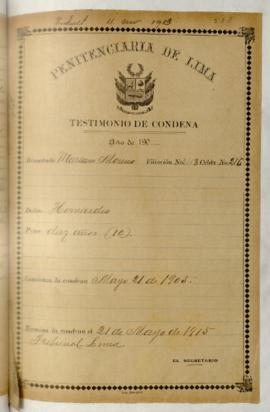 11 1913
PENITENCIARIA DE LIMA
TESTIMONIO DE CONDENA
Año de 190
Rematado Mariano Moreno Filiación No. 113 Celda No. 216
Delito Homicidio
Pena diez años (10)
Comienza la condena Mayo 21 de 1905.
Termina la condena el 21 de Mayo de 1915
Tribunal Lima
EL SECRETARIO